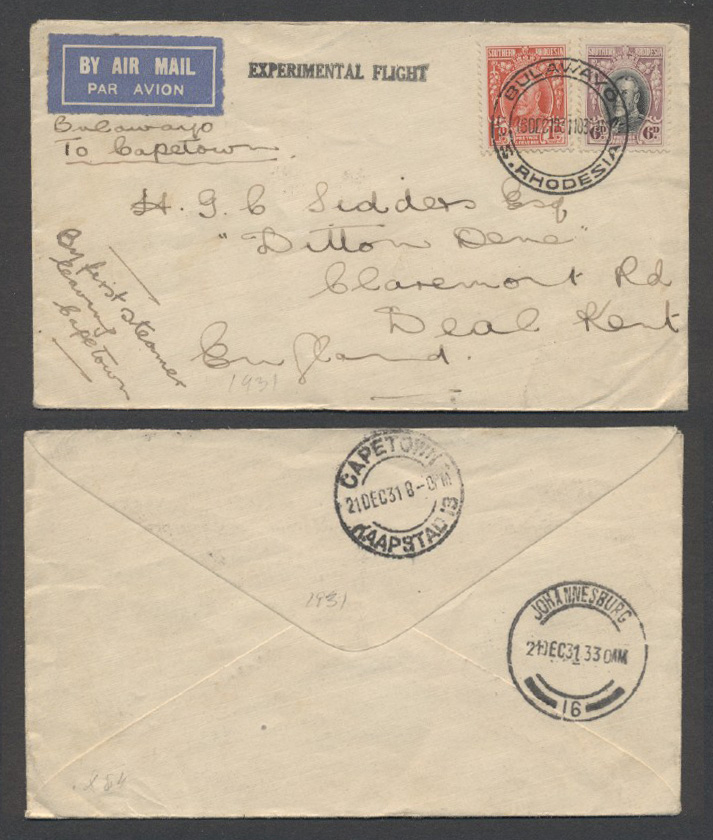 BY AIR MAIL
PAR AVION
EXPERIMENTAL FLIGHT
SOUTHERN RHODESIA
1D.
SOUTHERN RHODESIA
6D
BULAWAYO
RHODESIA
Bulawayo
To Capetown
H. G. C Sidders Esq
"Ditton Dene"
Claremont Rd
Deal Kent
England.
By first steamer
leaving
Capetown
1931
CAPETOWN
21DEC31 8-0PM
KAAPSTAD 13
1931
JOHANNESBURG
21DEC31 330AM
16